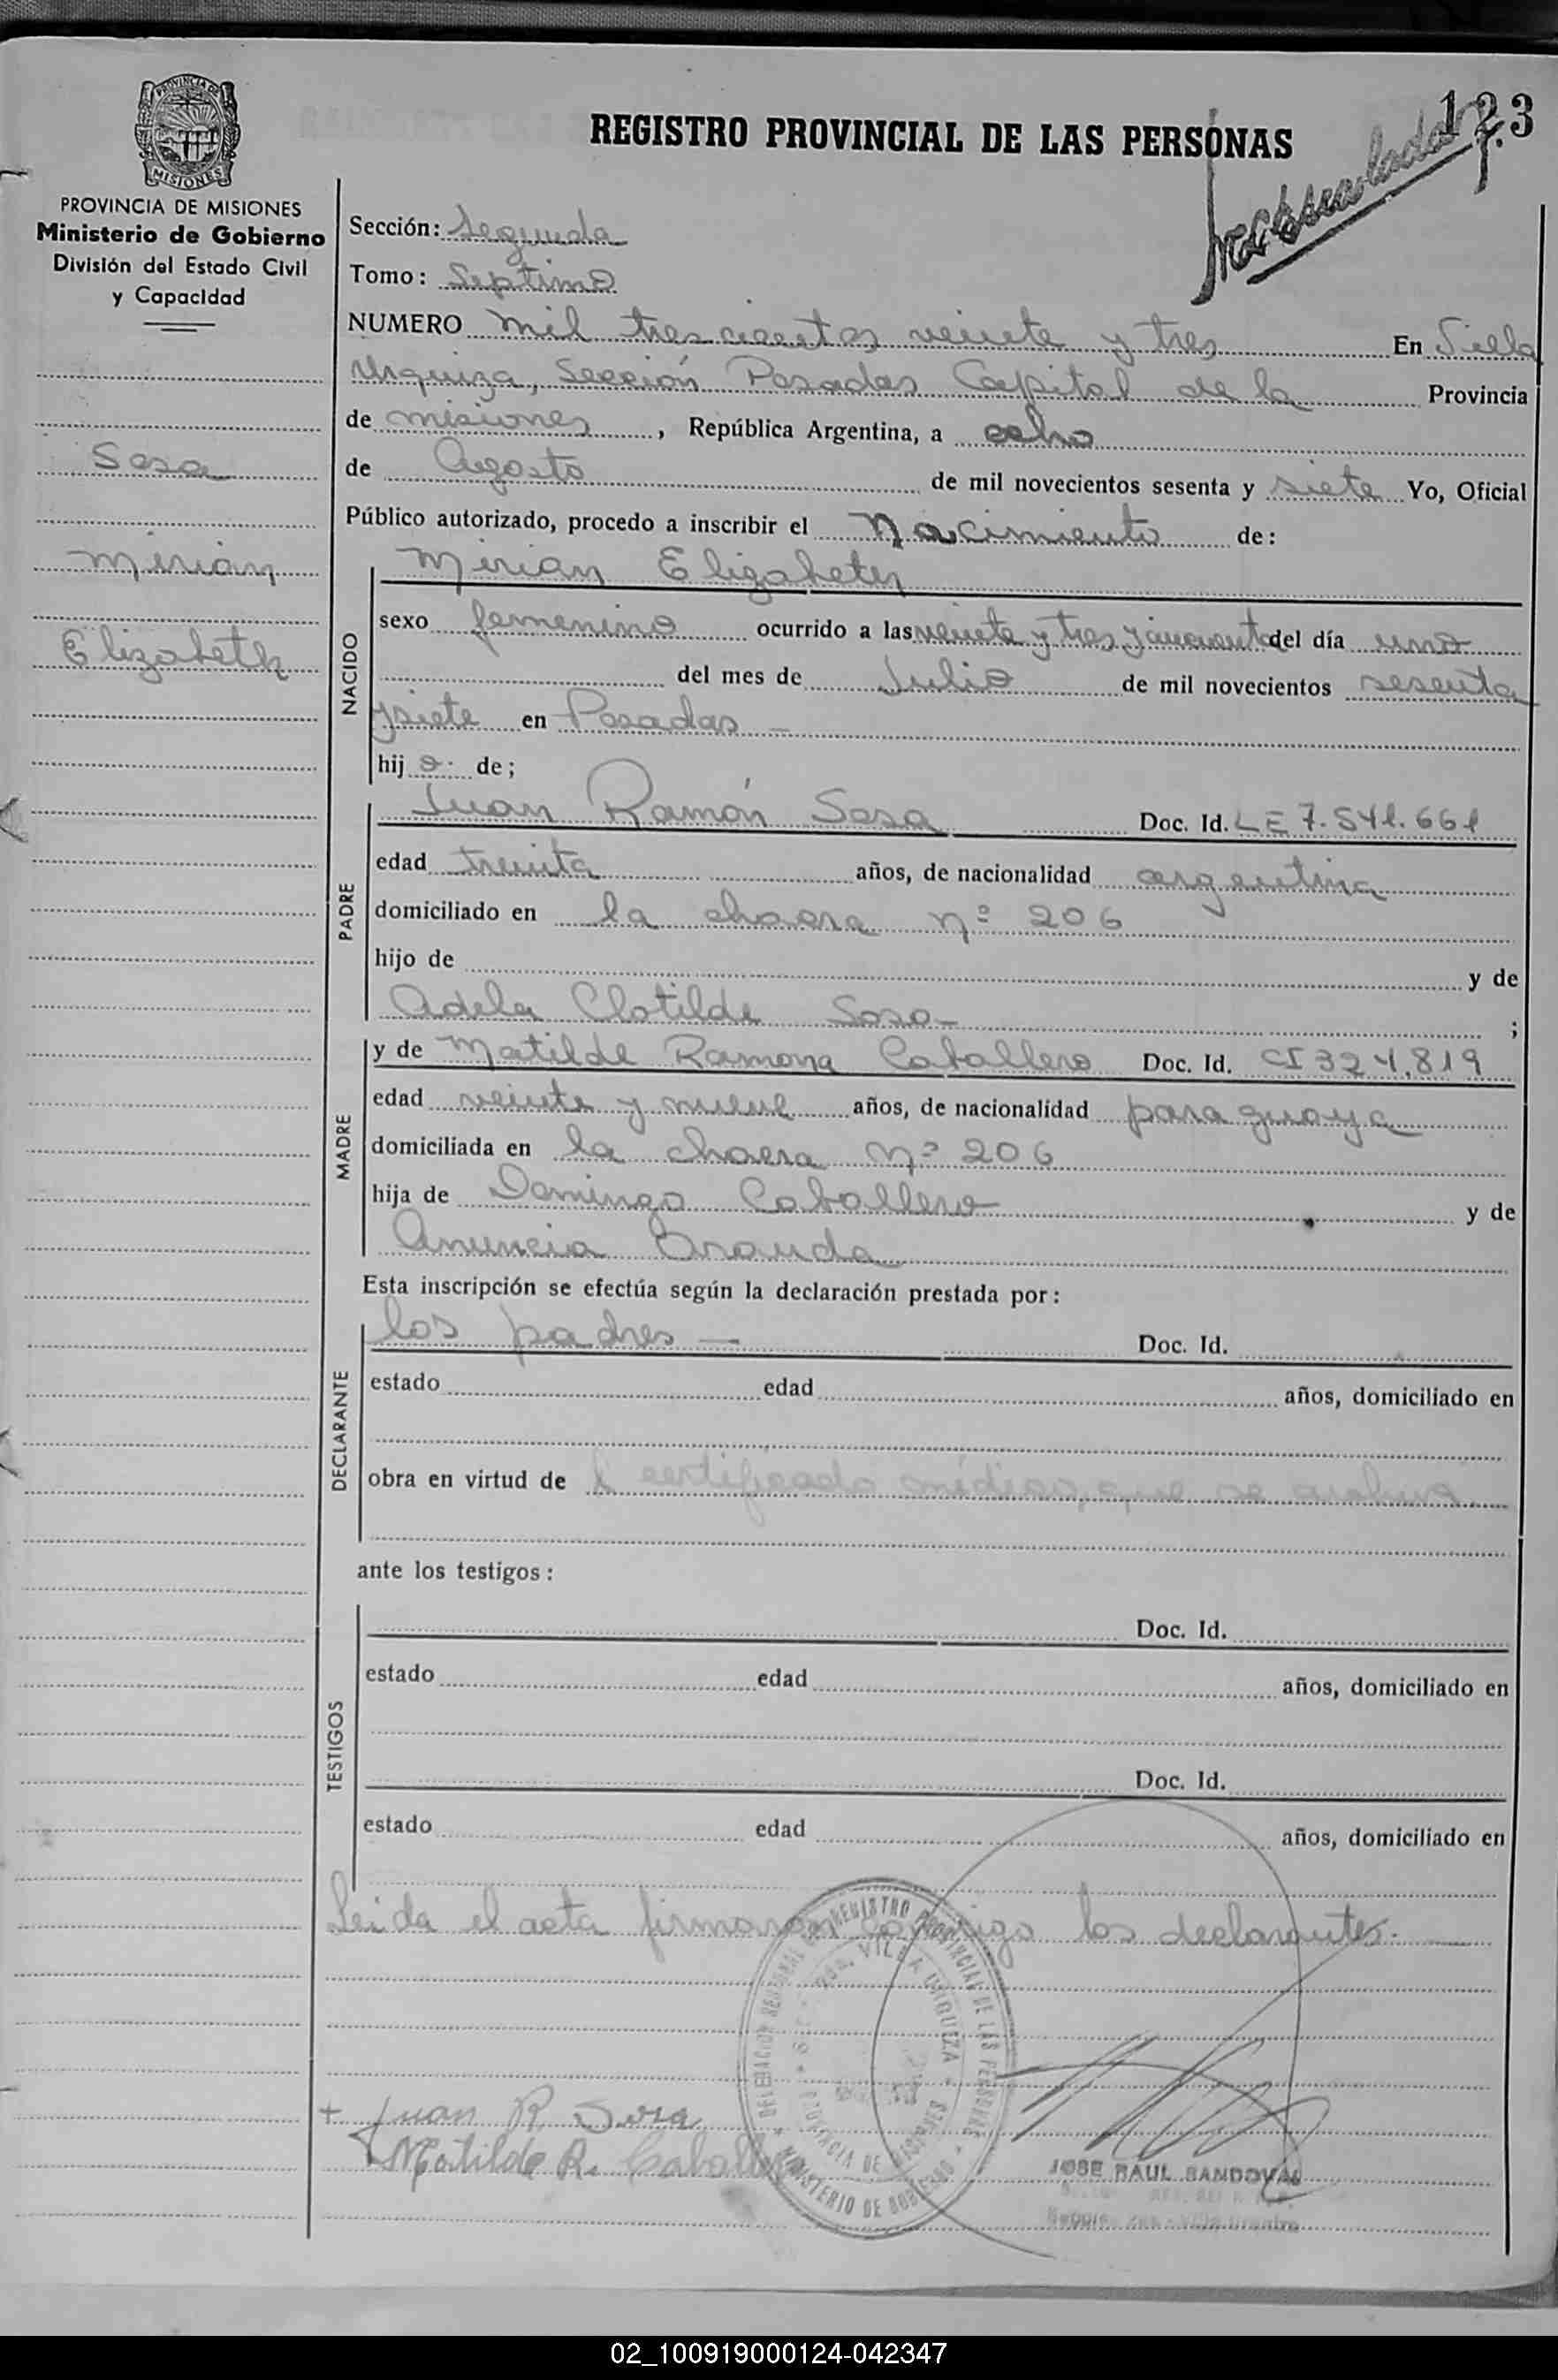 123
REGISTRO PROVINCIAL DE LAS PERSONAS
PROVINCIA DE
MISIONES
PROVINCIA DE MISIONES
Ministerio de Gobierno
División del Estado Civil
y Capacidad
Sosa
Mirian
Elizabeth
Sección: Segunda
Tomo: Septimo
NUMERO mil trescientos veinte y tres En Villa
Urquiza, Sección Posadas Capital de la Provincia
de Misiones, República Argentina, a ocho
de Agosto de mil novecientos sesenta y siete Yo, Oficial
Público autorizado, procedo a inscribir el Nacimiento de:
Mirian Elizabeth
NACIDO
sexo femenino ocurrido a las veinte y tres y cincuenta del día uno
del mes de Julio de mil novecientos sesenta
y siete en Posadas —
hija de;
PADRE
Juan Ramón Sosa Doc. Id. LE 7.541.661
edad treinta años, de nacionalidad argentina
domiciliado en la chacra nº 206
hijo de y de
Adela Clotilde Sosa— ;
MADRE
y de Matilde Ramona Caballero Doc. Id. CI 324.819
edad veinte y nueve años, de nacionalidad paraguaya
domiciliada en la chacra Nº 206
hija de Domingo Caballero y de
Anuncia Aranda
Esta inscripción se efectúa según la declaración prestada por:
DECLARANTE
los padres — Doc. Id.
estado edad años, domiciliado en
obra en virtud de certificado médico, que se archiva
ante los testigos:
TESTIGOS
Doc. Id.
estado edad años, domiciliado en
Doc. Id.
estado edad años, domiciliado en
Leida el acta firmaron conmigo los declarantes. —
DELEGACION REGIONAL DEL REGISTRO PROVINCIAL DE LAS PERSONAS
VILLA URQUIZA
PROVINCIA DE MISIONES
MINISTERIO DE GOBIERNO
+ Juan R. Sosa
Matilde R. Caballero
JOSE RAUL SANDOVAL
02_100919000124-042347